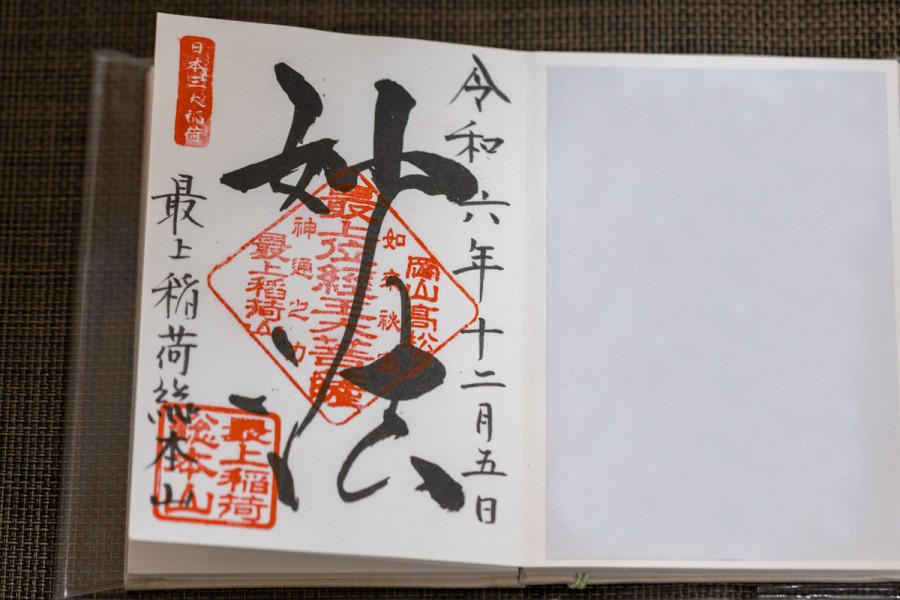 令和六年十二月五日
妙法
岡山高松
如来秘
最上位経王大菩薩
神通之力
最上稲荷山
日本三大稲荷
最上稲荷総本山
最上稲荷
総本山